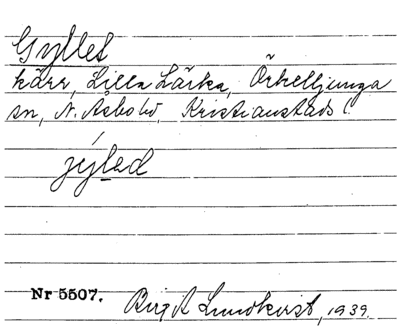 Gyllet
kärr, Lilla Lärka, Örkelljunga
sn, N. Åsbo hd. Kristianstads l.
jýled
Nr 5507. Birgit Lundkvist, 1939.